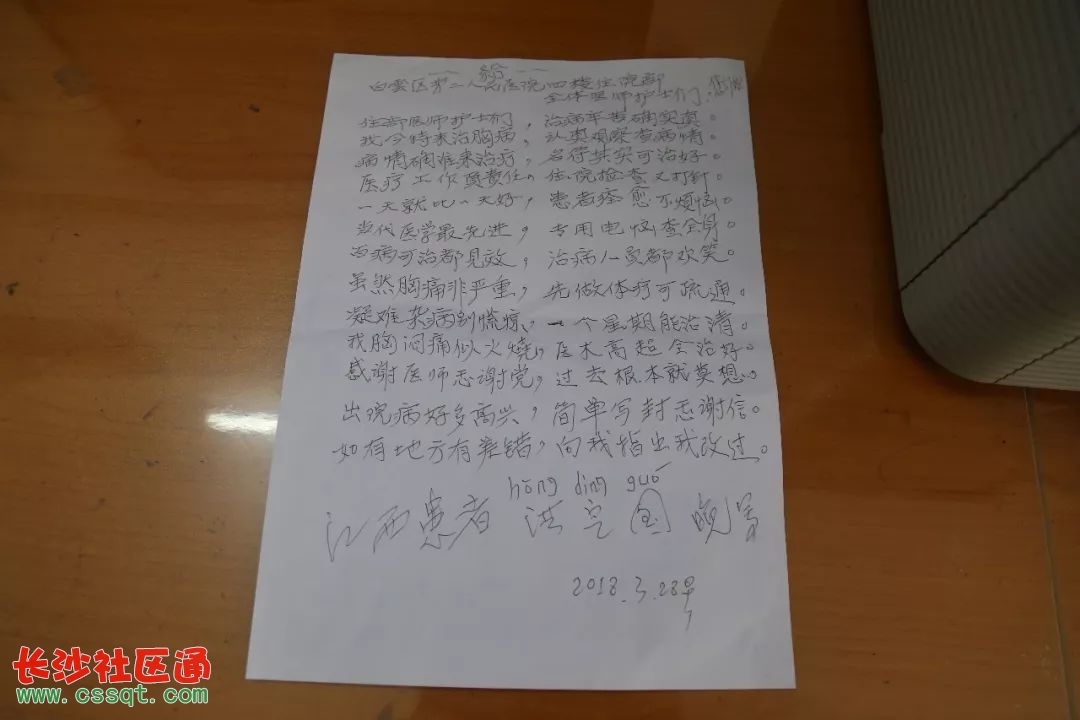 给
白云区第二人民医院四楼住院部
全体医师护士们:您们
住部医师护士们,治病平告确实真。
我今特来治胸病,认真观察查病情。
病情确准来治疗,名符其实可治好。
医疗工作负责任。住院检查又打针。
一天就比一天好,患者痊愈不烦恼。
当代医学最先进,专用电脑查全身。
百病可治都见效,治病人员都欢笑。
虽然胸痛非严重,先做体疗可疏通。
凝难杂病别慌惊,一个星期能治清。
我胸闷痛似火燒,医术高超全治好。
感谢医师志谢党,过去根本就莫想。
出院病好多高兴,简单写封志谢信。
如有地方有差错,向我指出我改过。
hōng dìng guó
江西患者 洪定国 晚写
2018.3.28号
长沙社区通
www.cssqt.com